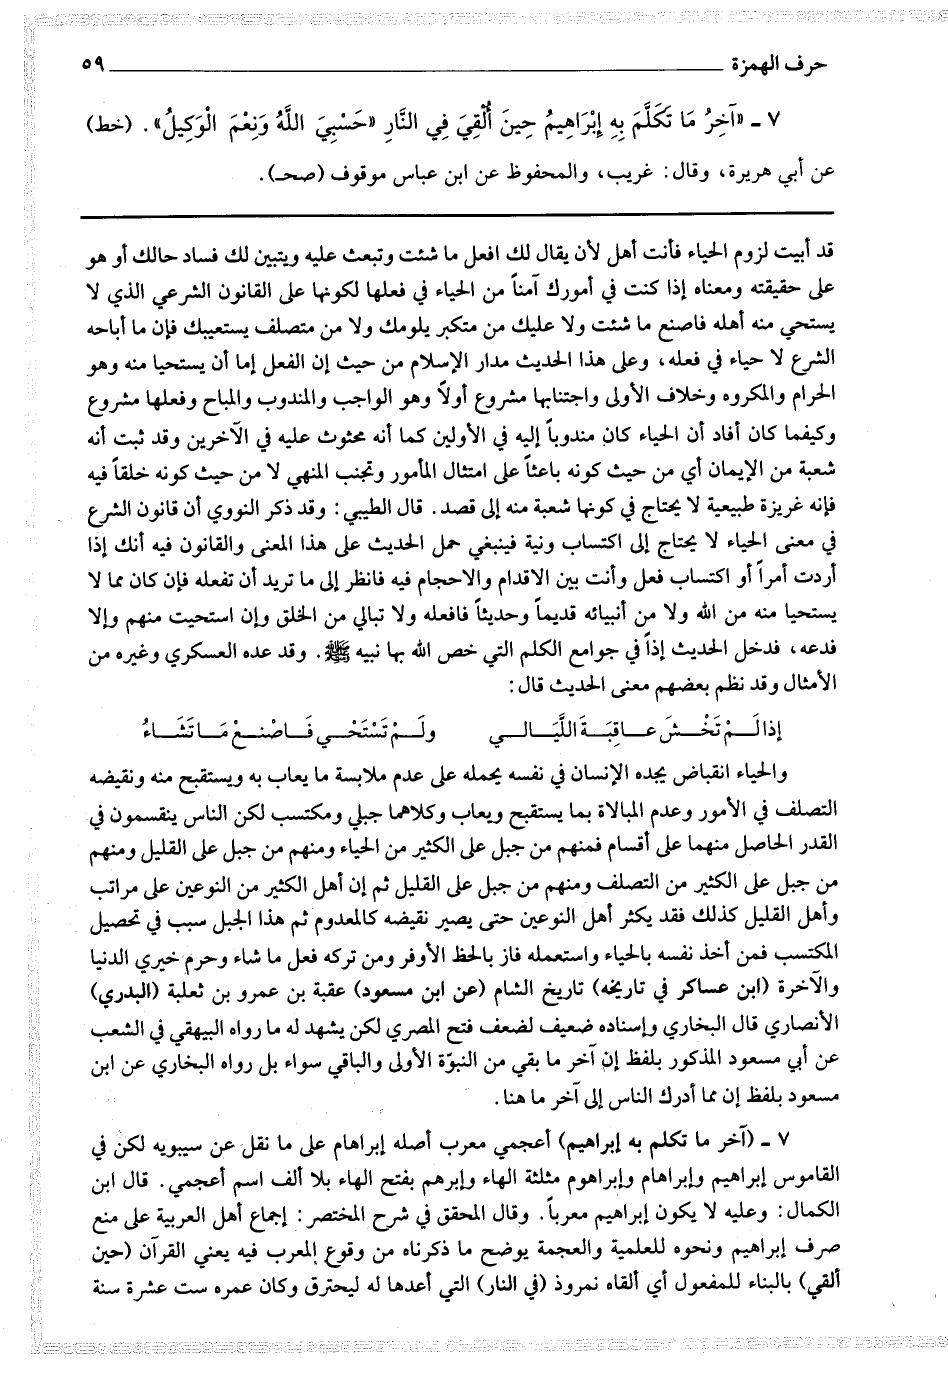 حرف الهمزة ٥٩
٧ ـ «آخِرُ مَا تَكَلَّمَ بِهِ إِبْرَاهِيمُ حِينَ أُلْقِيَ فِي النَّارِ «حَسْبِيَ اللَّهُ وَنِعْمَ الْوَكِيلُ». (خط)
عن أبي هريرة، وقال: غريب، والمحفوظ عن ابن عباس موقوف (صحـ).
قد أبيت لزوم الحياء فأنت أهل لأن يقال لك افعل ما شئت وتبعث عليه ويتبين لك فساد حالك أو هو
على حقيقته ومعناه إذا كنت في أمورك آمناً من الحياء في فعلها لكونها على القانون الشرعي الذي لا
يستحي منه أهله فاصنع ما شئت ولا عليك من متكبر يلومك ولا من متصلف يستعيبك فإن ما أباحه
الشرع لا حياء في فعله، وعلى هذا الحديث مدار الإسلام من حيث إن الفعل إما أن يستحيا منه وهو
الحرام والمكروه وخلاف الأولى واجتنابها مشروع أولاً وهو الواجب والمندوب والمباح وفعلها مشروع
وكيفما كان أفاد أن الحياء كان مندوباً إليه في الأولين كما أنه محثوث عليه في الآخرين وقد ثبت أنه
شعبة من الإيمان أي من حيث كونه باعثاً على امتثال المأمور وتجنب المنهي لا من حيث كونه خلقاً فيه
فإنه غريزة طبيعية لا يحتاج في كونها شعبة منه إلى قصد. قال الطيبي: وقد ذكر النووي أن قانون الشرع
في معنى الحياء لا يحتاج إلى اكتساب ونية فينبغي حمل الحديث على هذا المعنى والقانون فيه أنك إذا
أردت أمراً أو اكتساب فعل وأنت بين الاقدام والاحجام فيه فانظر إلى ما تريد أن تفعله فإن كان مما لا
يستحيا منه من الله ولا من أنبيائه قديماً وحديثاً فافعله ولا تبالي من الخلق وإن استحيت منهم وإلا
فدعه، فدخل الحديث إذاً في جوامع الكلم التي خص الله بها نبيه ﷺ. وقد عده العسكري وغيره من
الأمثال وقد نظم بعضهم معنى الحديث قال:
إذا لَمْ تَخْشَ عَاقِبَةَ اللَّيَالي ولَمْ تَسْتَحْي فَاصْنعْ مَا تَشَاءُ
والحياء انقباض يجده الإنسان في نفسه يحمله على عدم ملابسة ما يعاب به ويستقبح منه ونقيضه
التصلف في الأمور وعدم المبالاة بما يستقبح ويعاب وكلاهما جبلي ومكتسب لكن الناس ينقسمون في
القدر الحاصل منهما على أقسام فمنهم من جبل على الكثير من الحياء ومنهم من جبل على القليل ومنهم
من جبل على الكثير من التصلف ومنهم من جبل على القليل ثم إن أهل الكثير من النوعين على مراتب
وأهل القليل كذلك فقد يكثر أهل النوعين حتى يصير نقيضه كالمعدوم ثم هذا الجبل سبب في تحصيل
المكتسب فمن أخذ نفسه بالحياء واستعمله فاز بالحظ الأوفر ومن تركه فعل ما شاء وحرم خيري الدنيا
والآخرة (ابن عساكر في تاريخه) تاريخ الشام (عن ابن مسعود) عقبة بن عمرو بن ثعلبة (البدري)
الأنصاري قال البخاري وإسناده ضعيف لضعف فتح المصري لكن يشهد له ما رواه البيهقي في الشعب
عن أبي مسعود المذكور بلفظ إن آخر ما بقي من النبوّة الأولى والباقي سواء بل رواه البخاري عن ابن
مسعود بلفظ إن مما أدرك الناس إلى آخر ما هنا.
٧ ـ (آخر ما تكلم به إبراهيم) أعجمي معرب أصله إبراهام على ما نقل عن سيبويه لكن في
القاموس إبراهيم وإبراهام وإبراهوم مثلثة الهاء وإبرهم بفتح الهاء بلا ألف اسم أعجمي. قال ابن
الكمال: وعليه لا يكون إبراهيم معرباً. وقال المحقق في شرح المختصر: إجماع أهل العربية على منع
صرف إبراهيم ونحوه للعلمية والعجمة يوضح ما ذكرناه من وقوع المعرب فيه يعني القرآن (حين
ألقي) بالبناء للمفعول أي ألقاه نمروذ (في النار) التي أعدها له ليحترق وكان عمره ست عشرة سنة